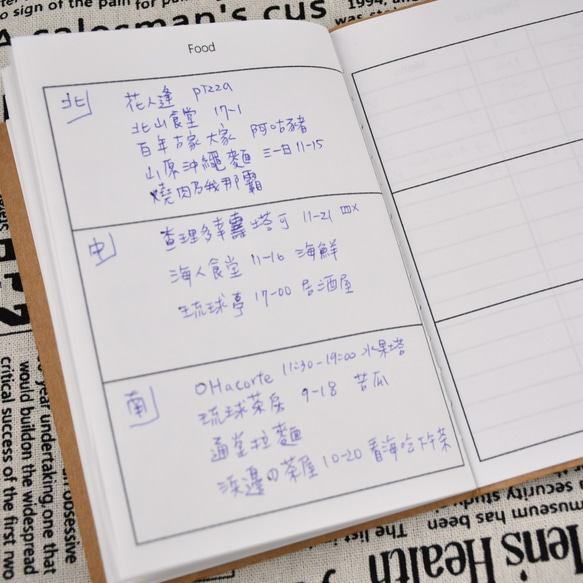 a salesman's cus
o sign of the pain for
1994,
Food
北
花人逢 pizza
北山食堂 17-1
百年古家 大家 阿咕豬
山原沖繩麵 三一日 11-15
燒肉乃我那霸
中
查理多幸壽 塔可 11-21 四x
海人食堂 11-16 海鮮
琉球亭 17-00 居酒屋
南
OHacorte 11:30-19:00 水果塔
琉球茶房 9-18 苦瓜
通堂拉麵
浜邊の茶屋 10-20 看海吃下午茶
year undertaking, one that
would buildon the widespread
critical success of the first two
obsessive
a security
museum has been
The
n's Health